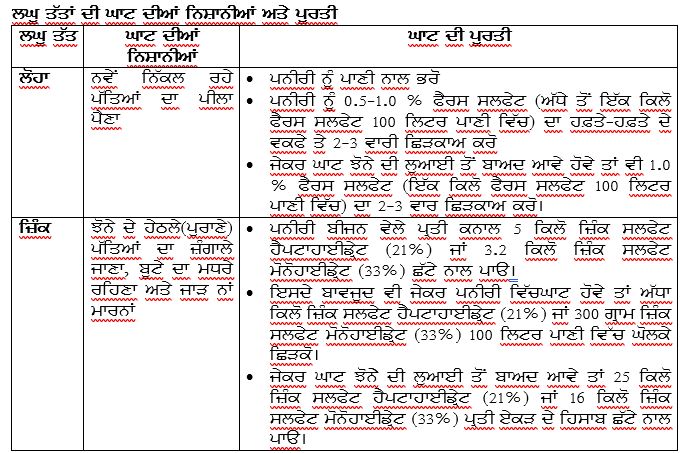 ਲਘੂ ਤੱਤਾਂ ਦੀ ਘਾਟ ਦੀਆਂ ਨਿਸ਼ਾਨੀਆਂ ਅਤੇ ਪੂਰਤੀ
ਲਘੂ ਤੱਤ
ਘਾਟ ਦੀਆਂ
ਨਿਸ਼ਾਨੀਆਂ
ਘਾਟ ਦੀ ਪੂਰਤੀ
ਲੋਹਾ
ਨਵੇਂ ਨਿੱਕਲ ਰਹੇ
ਪੱਤਿਆਂ ਦਾ ਪੀਲਾ
ਪੈਣਾ
• ਪਨੀਰੀ ਨੂੰ ਪਾਣੀ ਨਾਲ ਭਰੋ
• ਪਨੀਰੀ ਨੂੰ 0.5-1.0 % ਫੈਰਸ ਸਲਫੇਟ (ਅੱਧੇ ਤੋਂ ਇੱਕ ਕਿਲੋ
ਫੈਰਸ ਸਲਫੇਟ 100 ਲਿਟਰ ਪਾਣੀ ਵਿੱਚ) ਦਾ ਹਫਤੇ-ਹਫਤੇ ਦੇ
ਵਕਫੇ ਤੇ 2-3 ਵਾਰੀ ਛਿੜਕਾਅ ਕਰੋ
• ਜੇਕਰ ਘਾਟ ਝੋਨੇ ਦੀ ਲੁਆਈ ਤੋਂ ਬਾਅਦ ਆਵੇ ਹੋਵੇ ਤਾਂ ਵੀ 1.0
% ਫੈਰਸ ਸਲਫੇਟ (ਇੱਕ ਕਿਲੋ ਫੈਰਸ ਸਲਫੇਟ 100 ਲਿਟਰ
ਪਾਣੀ ਵਿੱਚ) ਦਾ 2-3 ਵਾਰ ਛਿੜਕਾਅ ਕਰੋ।
ਜ਼ਿੰਕ
ਝੋਨੇ ਦੇ ਹੇਠਲੇ(ਪੁਰਾਣੇ)
ਪੱਤਿਆਂ ਦਾ ਜੰਗਾਲੇ
ਜਾਣਾ, ਬੂਟੇ ਦਾ ਮਧਰੇ
ਰਹਿਣਾ ਅਤੇ ਜਾੜ ਨਾਂ
ਮਾਰਨਾਂ
• ਪਨੀਰੀ ਬੀਜਨ ਵੇਲੇ ਪ੍ਰਤੀ ਕਨਾਲ 5 ਕਿਲੋ ਜ਼ਿੰਕ ਸਲਫੇਟ
ਹੈਪਟਾਹਾਈਡ੍ਰੇਟ (21%) ਜਾਂ 3.2 ਕਿਲੋ ਜ਼ਿੰਕ ਸਲਫੇਟ
ਮੋਨੋਹਾਈਡ੍ਰੇਟ (33%) ਛੱਟੇ ਨਾਲ ਪਾਓ।
• ਇਸਦੇ ਬਾਵਜੂਦ ਵੀ ਜੇਕਰ ਪਨੀਰੀ ਵਿੱਚਘਾਟ ਹੋਵੇ ਤਾਂ ਅੱਧਾ
ਕਿਲੋ ਜ਼ਿੰਕ ਸਲਫੇਟ ਹੈਪਟਾਹਾਈਡ੍ਰੇਟ (21%) ਜਾਂ 300 ਗ੍ਰਾਮ ਜ਼ਿੰਕ
ਸਲਫੇਟ ਮੋਨੋਹਾਈਡ੍ਰੇਟ (33%) 100 ਲਿਟਰ ਪਾਣੀ ਵਿੱਚ ਘੋਲਕੇ
ਛਿੜਕੋ।
• ਜੇਕਰ ਘਾਟ ਝੋਨੇ ਦੀ ਲੁਆਈ ਤੋਂ ਬਾਅਦ ਆਵੇ ਤਾਂ 25 ਕਿਲੋ
ਜ਼ਿੰਕ ਸਲਫੇਟ ਹੈਪਟਾਹਾਈਡ੍ਰੇਟ (21%) ਜਾਂ 16 ਕਿਲੋ ਜ਼ਿੰਕ
ਸਲਫੇਟ ਮੋਨੋਹਾਈਡ੍ਰੇਟ (33%) ਪ੍ਰਤੀ ਏਕੜ ਦੇ ਹਿਸਾਬ ਛੱਟੇ ਨਾਲ
ਪਾਓ।